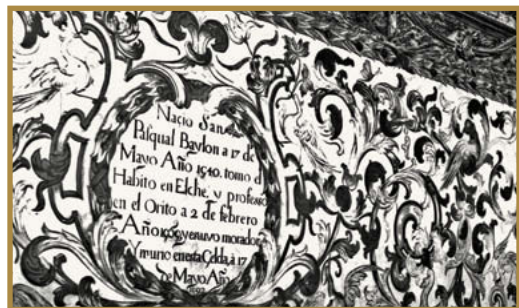 Nacio San
Pasqual Baylon a 17 de
Mayo Año 1540. tomo el
Habito en Elche. y professo
en el Orito a 2 de febrero
Año y estuvo morador
Y murio en esta Celda, à 17
de Mayo Año
1592